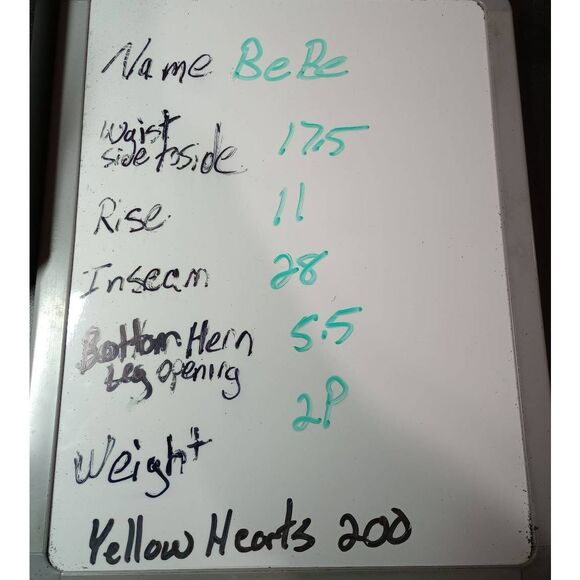 Name BeBe
Waist
side to side 17.5
Rise 11
Inseam 28
Bottom Hem 5.5
Leg opening
2P
Weight
Yellow Hearts 200